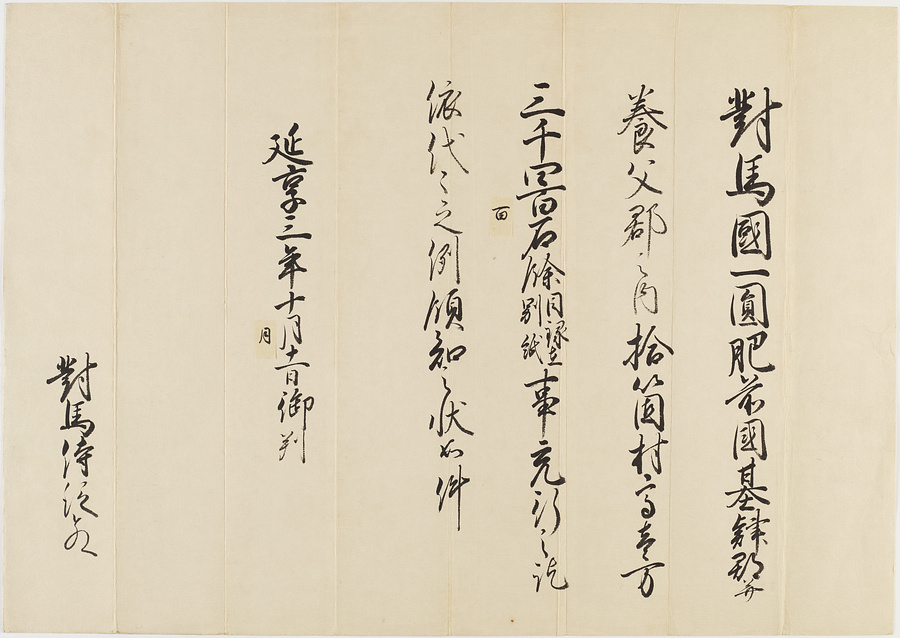 對馬國一圓肥前國基肄郡并
養父郡之内拾箇村高壱万
三千四百石餘目録在別紙事充行之訖
百
依代々之例領知之状如件
延享三年十月十一日御判
月
對馬侍従殿